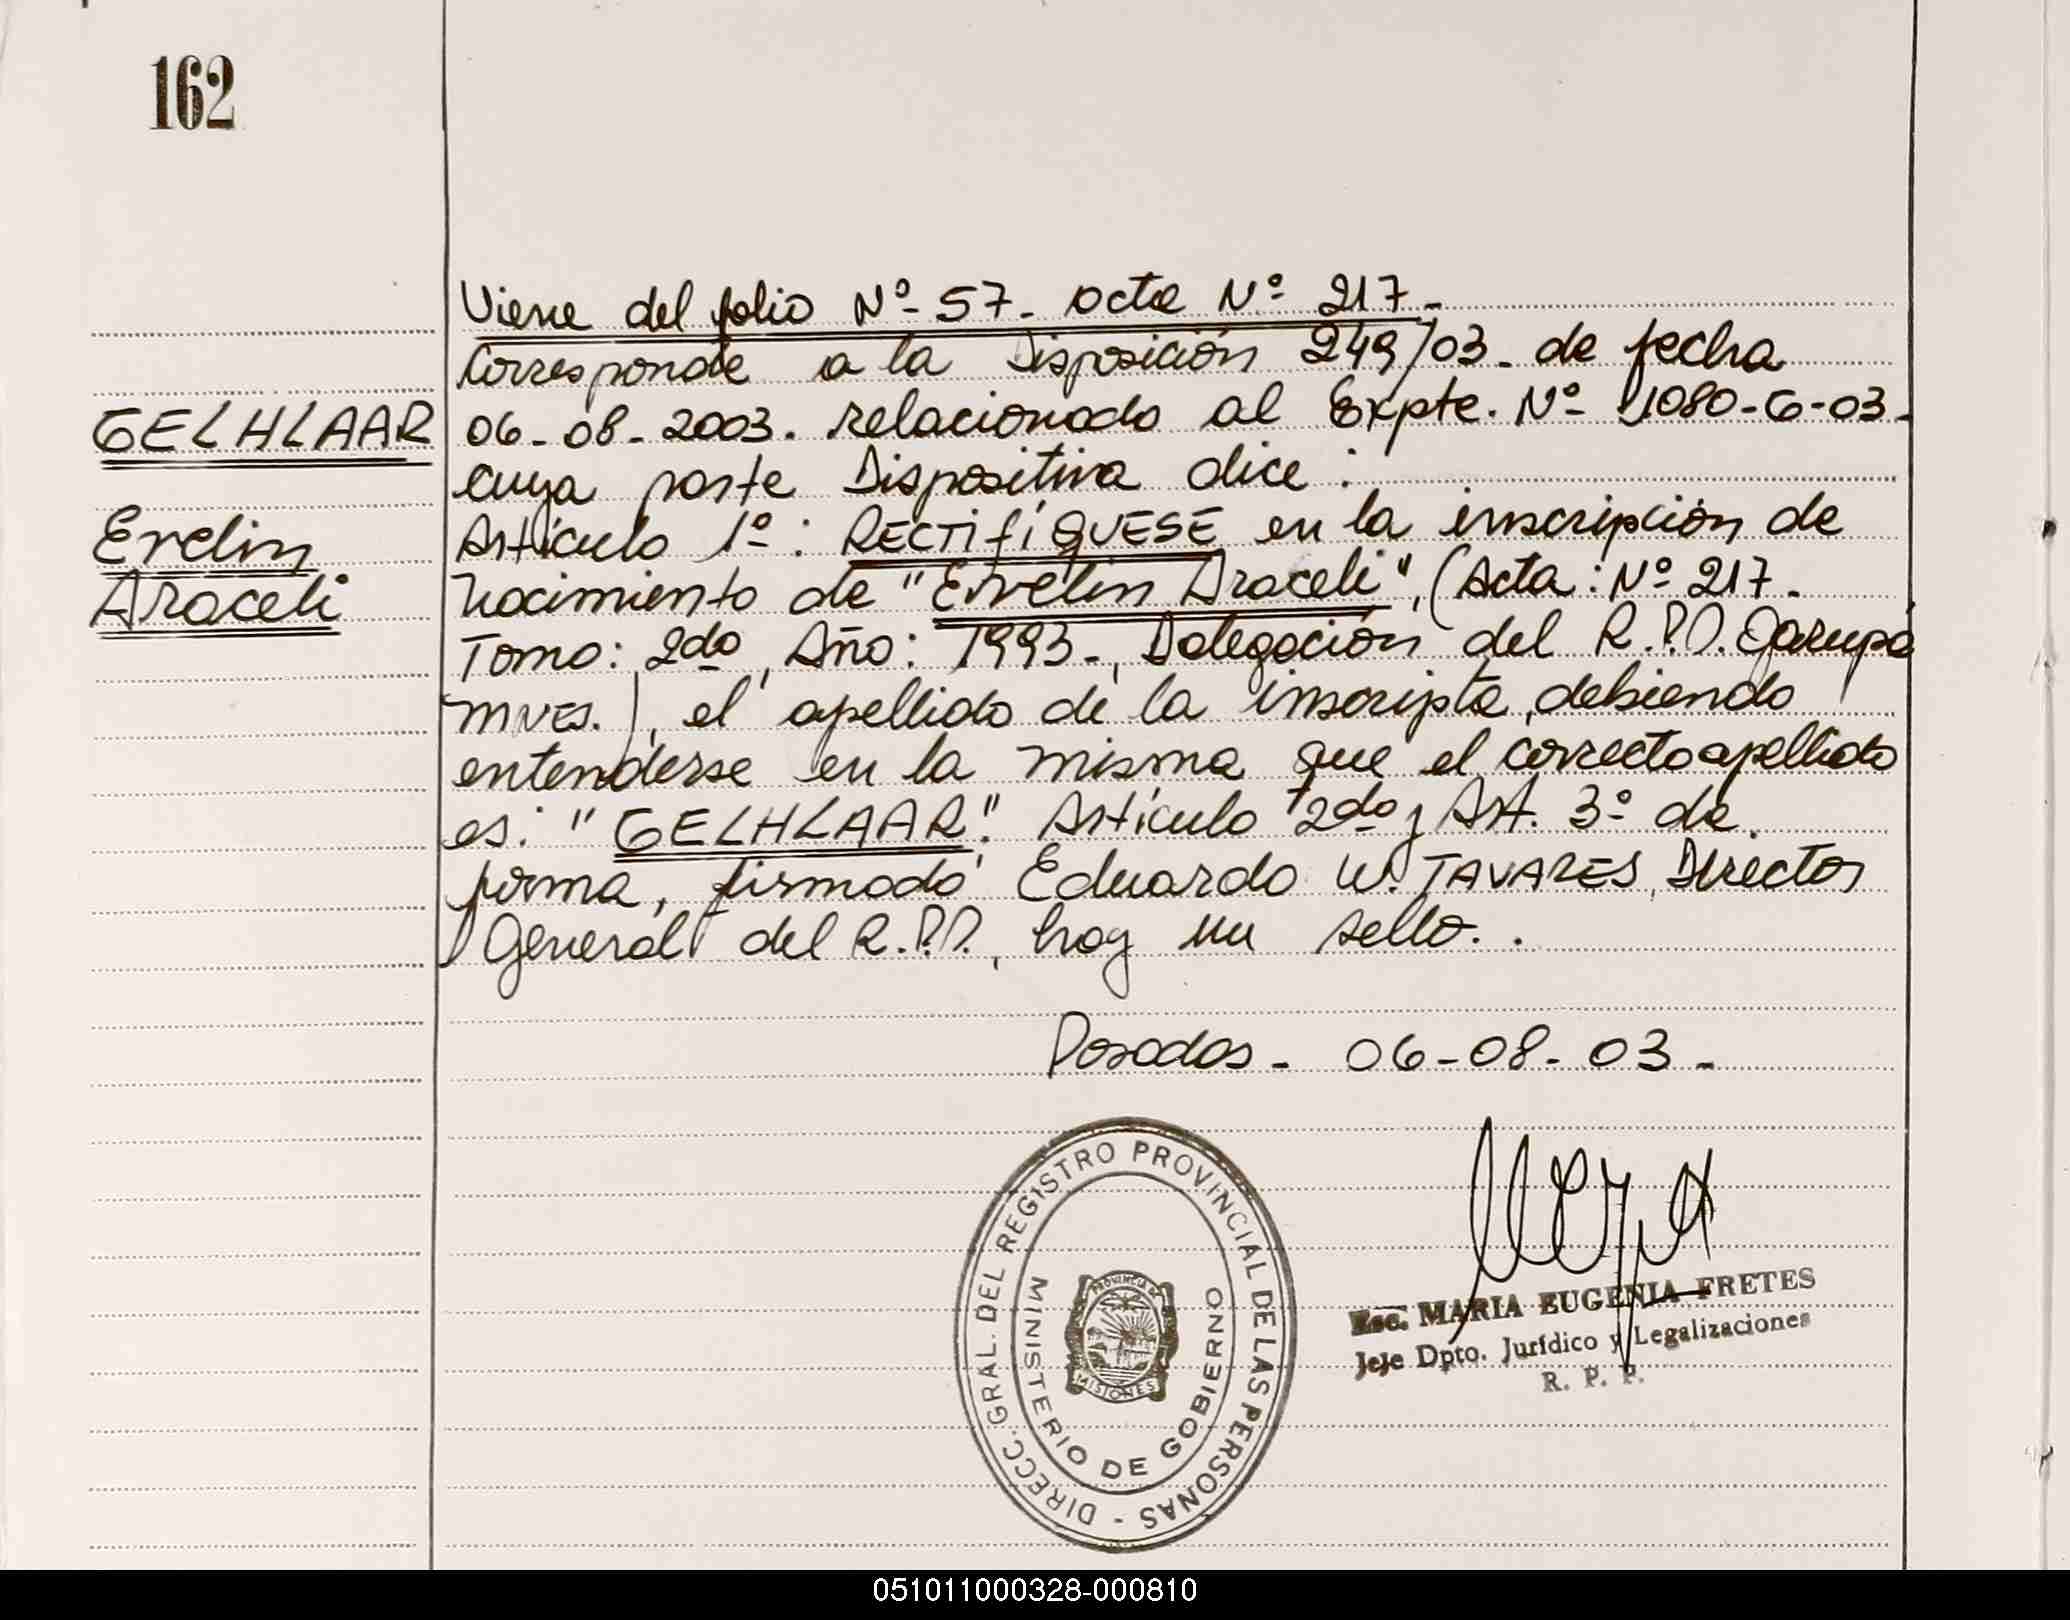 162
Viene del folio Nº 57. acta Nº 217.
Corresponde a la Disposición 249/03. de fecha
GELHLAAR
06-08-2003. relacionado al Expte. Nº 1080-G-03-
cuya parte Dispositiva dice:
Evelin
Artículo 1º: RECTIFÍQUESE en la inscripción de
Araceli
nacimiento de "Evelin Araceli", (Acta: Nº 217.
Tomo: 2do, Año: 1993., Delegación del R.P.P. Garupá
MNES.), el apellido de la inscripta, debiendo
entenderse en la misma que el correcto apellido
es: "GELHLAAR". Artículo 2do y Art. 3º de
forma, firmado Eduardo W. TAVARES, Director
General del R.P.P., hay un sello..
Posadas - 06-08-03-
DIRECC. GRAL. DEL REGISTRO PROVINCIAL DE LAS PERSONAS -
MINISTERIO DE GOBIERNO
PROVINCIA DE
MISIONES
Esc. MARIA EUGENIA FRETES
Jefe Dpto. Jurídico y Legalizaciones
R. P. P.
051011000328-000810